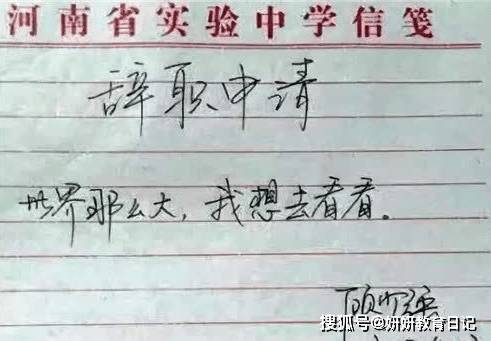 河南省实验中学信笺
辞职申请
世界那么大,我想去看看。
顾少强
搜狐号@妍妍教育日记